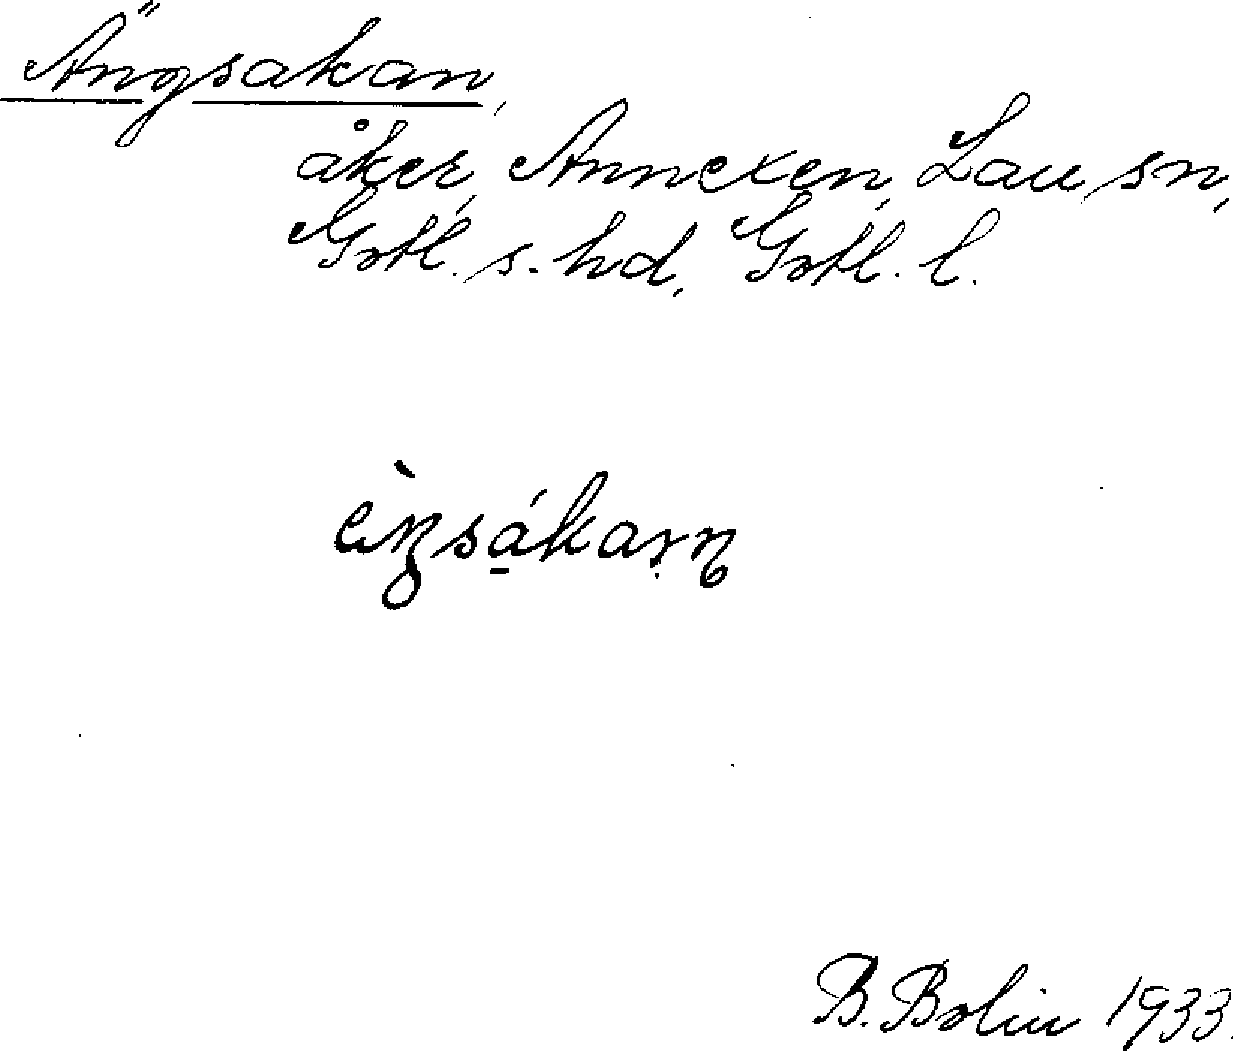 Ängsakan,
åker, Annexen, Lau sn,
Gotl. s. hd, Gotl. l.
B. Bolin 1933.